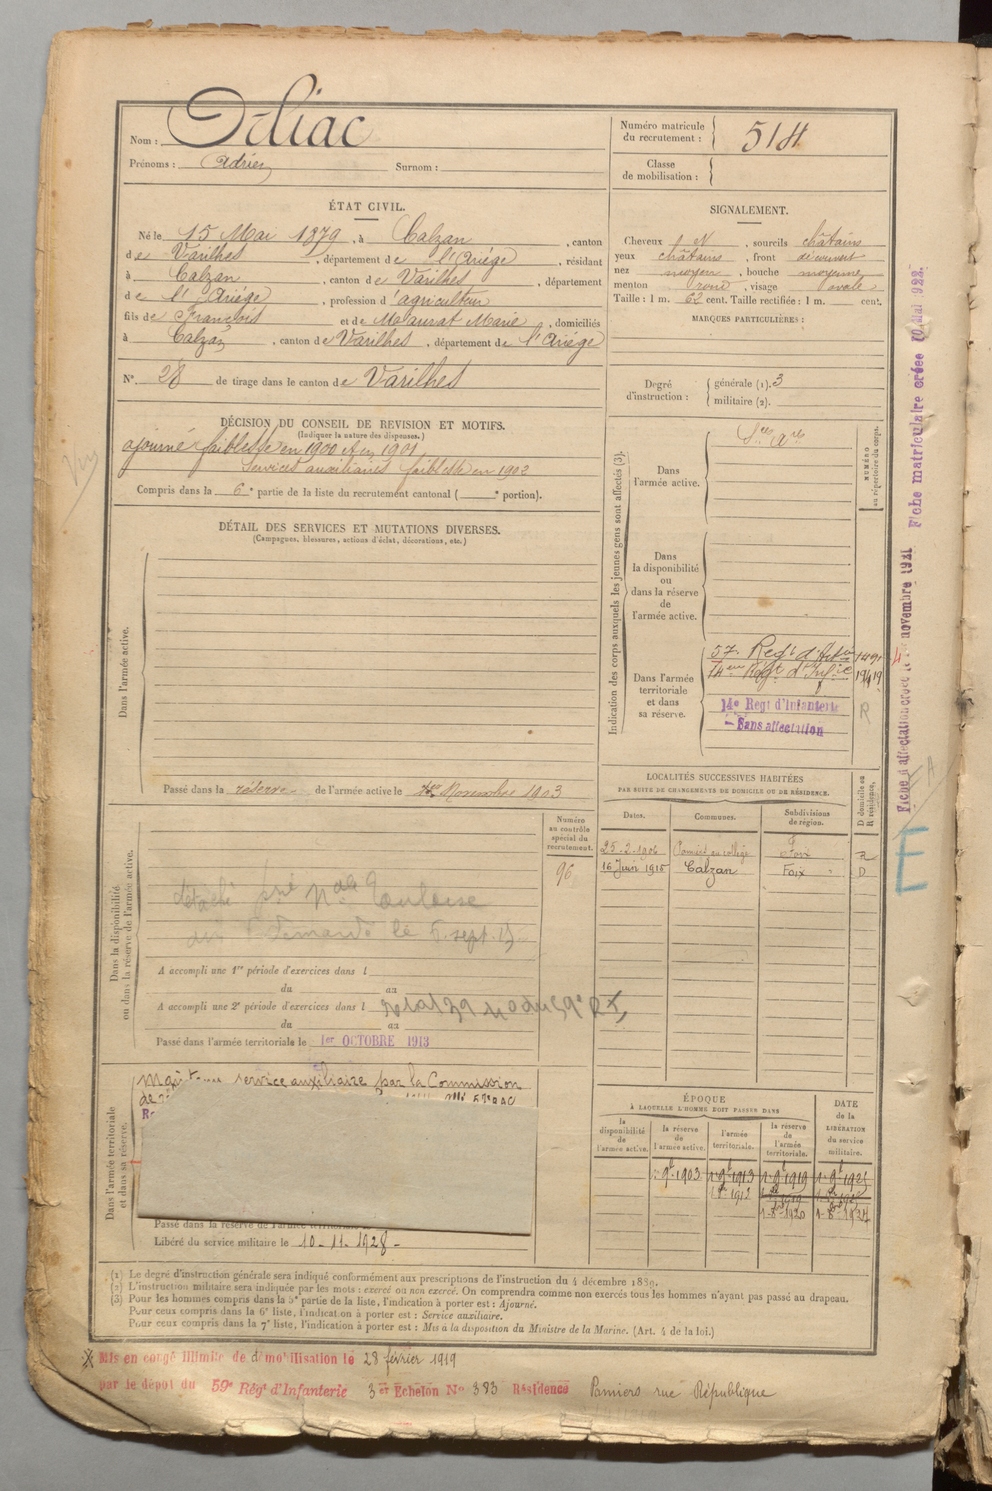 Nom : Odiac
Prénoms : Adrien Surnom :
Numéro matricule
du recrutement : 514
Classe
de mobilisation :
ÉTAT CIVIL.
Né le 15 Mai 1879, à Calzan, canton
de Varilhes, département de l'Ariége, résidant
à Calzan, canton de Varilhes, département
de l'Ariége, profession d'agriculteur
fils de François et de Maurat Marie, domiciliés
à Calzan, canton de Varilhes, département de l'Ariége
N° 28 de tirage dans le canton de Varilhes
SIGNALEMENT.
Cheveux , sourcils châtains
yeux châtains, front découvert
nez moyen, bouche moyenne
menton rond, visage ovale
Taille : 1 m. 62 cent. Taille rectifiée : 1 m. cent.
MARQUES PARTICULIÈRES :
Degré
d'instruction :
générale (1). 3
militaire (2).
DÉCISION DU CONSEIL DE REVISION ET MOTIFS.
(Indiquer la nature des dispenses.)
ajourné faiblesse en 1900 et en 1901
Services auxiliaires faiblesse en 1902
Compris dans la 6e partie de la liste du recrutement cantonal ( e portion).
DÉTAIL DES SERVICES ET MUTATIONS DIVERSES.
(Campagnes, blessures, actions d'éclat, décorations, etc.)
Dans l'armée active.
Passé dans la réserve de l'armée active le 1er Novembre 1903
Indication des corps auxquels les jeunes gens sont affectés (3).
NUMÉRO
au répertoire du corps.
Dans
l'armée active.
Dans
la disponibilité
ou
dans la réserve
de
l'armée active.
Dans l'armée
territoriale
et dans
sa réserve.
57e Regt d'Artie
14eme Régt d'Infie
14e Regt d'Infanterie
Sans affectation
R
LOCALITÉS SUCCESSIVES HABITÉES
PAR SUITE DE CHANGEMENTS DE DOMICILE OU DE RÉSIDENCE.
D domicile ou
R résidence.
Dates. Communes. Subdivisions
de région.
25-2-1906 Pamiers au collège Foix R
16 Juin 1915 Calzan Foix D
Dans la disponibilité
ou dans la réserve de l'armée active.
Numéro
au contrôle
spécial du
recrutement.
96
détaché Toulouse
le 5 sept. 15
A accompli une 1re période d'exercices dans l
du au
A accompli une 2e période d'exercices dans l
du au
Passé dans l'armée territoriale le 1er OCTOBRE 1913
Dans l'armée territoriale
et dans sa réserve.
Maintenu service auxiliaire par la Commission
Passé dans la réserve de l'armée
Libéré du service militaire le 10-11-1928-
ÉPOQUE
À LAQUELLE L'HOMME DOIT PASSER DANS
DATE
de la
LIBÉRATION
du service
militaire.
la
disponibilité
de
l'armée active.
la réserve
de
l'armée active.
l'armée
territoriale.
la réserve
de
l'armée
territoriale.
(1) Le degré d'instruction générale sera indiqué conformément aux prescriptions de l'instruction du 4 décembre 1889.
(2) L'instruction militaire sera indiquée par les mots : exercé ou non exercé. On comprendra comme non exercés tous les hommes n'ayant pas passé au drapeau.
(3) Pour les hommes compris dans la 5e partie de la liste, l'indication à porter est : Ajourné.
Pour ceux compris dans la 6e liste, l'indication à porter est : Service auxiliaire.
Pour ceux compris dans la 7e liste, l'indication à porter est : Mis à la disposition du Ministre de la Marine. (Art. 4 de la loi.)
Mis en congé illimité de démobilisation le 28 février 1919
par le dépôt du 59e Régt d'Infanterie 3er Echelon No 393 Résidence Pamiers rue République
Fiche d'affectation créée novembre 1921 Fiche matriculaire créée 10 Mai 1922.